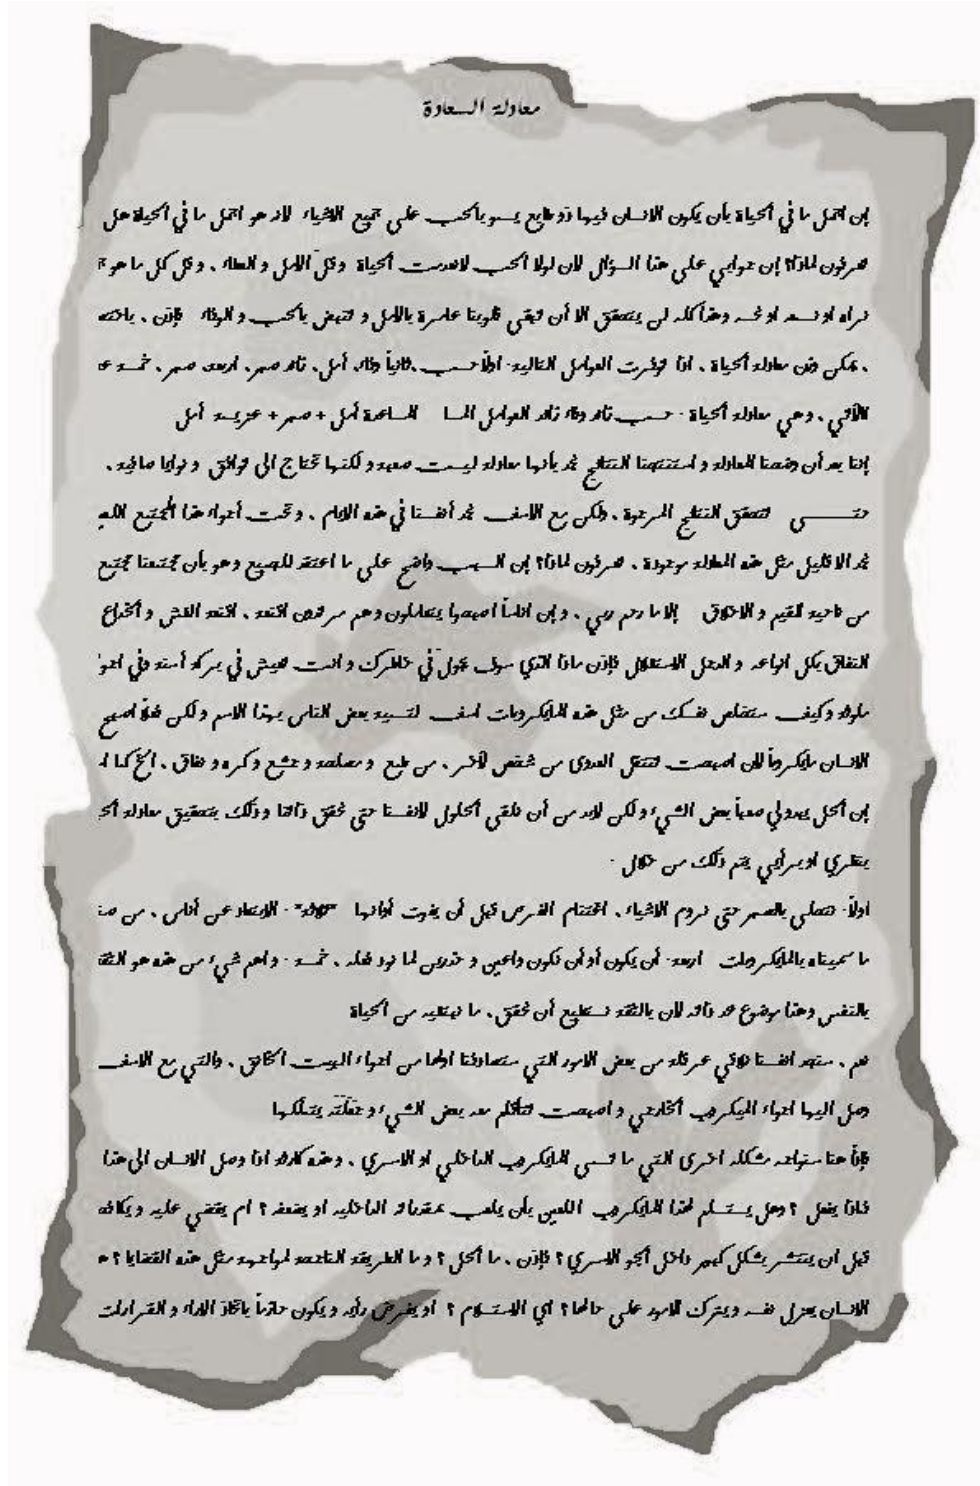 معادلة السعادة
إن اجمل ما في الحياة بأن يكون الانسان فيها ذو طابع يسمو بالحب على جميع الاشياء لانه هو اجمل ما في الحياة هل
تعرفون لماذا؟ إن جوابي على هذا السؤال لان لولا الحب لانعدمت الحياة وقلّ الامل و العطاء . وقل كل ما هو
نراه او نسمعه او نحسه وهذا كله لن يتحقق الا أن تبقى قلوبنا عامرة بالامل و تنبض بالحب و الوفاء فإذن .
.يمكن وزن معادلة الحياة . اذا توفرت العوامل التالية- اولاً حب .ثانياً وفاء. أمل. ثالثه صبر. اربعه صبر. خمسه
الآتي . وهي معادلة الحياة - حب زائد وفاء زائد العوامل المساعدة أمل + صبر + عزيمة أمل
إننا بعد أن وضعنا المعادلة و استنتجنا النتائج نجد بأنها معادلة ليست صعبه و لكنها تحتاج الى توافق و نوايا صافيه .
حتى تتحقق النتائج المرجوة . ولكن مع الاسف نجد أنفسنا في هذه الايام . و تحت أجواء هذا المجتمع
نجد الا قليل مثل هذه المعادلة موجودة . تعرفون لماذا؟ إن السبب واضح على ما اعتقد للجميع وهو بأن مجتمعنا مجتمع
من ناحيه القيم و الاخلاق إلا ما رحم ربي . وإن اناساً اصبحوا يتعاملون وهم مرتدون اقنعه . اقنعه الغش و الخداع
النفاق بكل انواعه و الدجل الاستغلال فإذن ماذا الذي سوف يجول في خاطرك و انت تعيش في بركه أسنه وفي
ملوثه وكيف ستخلص نفسك من مثل هذه المايكروبات اسف لتسميه بعض الناس بهذا الاسم و لكن فعلاً اصبح
الانسان مايكروباً لان اصبحت تنتقل العدوى من شخص لآخر . من طمع و مصلحه و جشع و كره و نفاق . الخ كما
إن الحل يبدو لي صعباً بعض الشيء و لكن لابد من أن نلقي الحلول لانفسنا حتى نحقق ذاتنا وذلك بتحقيق معادلة
بنظري او برأيي يتم ذلك من خلال -
اولاً- نتحلى بالصبر حتى نروم الاشياء . اغتنام الفرص قبل أن يفوت أوانها "ثالثه"- الابتعاد عن أناس . من
ما سميناه بالمايكروبات اربعه- أن يكون أو أن نكون واعين و حذرين لما نود فعله . خمسه - و اهم شيء من هذه هو الثقة
بالنفس وهذا موضوع بحد ذاته لان بالثقة نستطيع أن نحقق . ما نبتغيه من الحياة
نعم . سنجد انفسنا نلاقي عرقله من بعض الامور التي ستصادفنا اولها من اجواء البيت الخانق . والتي مع الاسف
وصل اليها اجواء الميكروب الخارجي و اصبحت تتأقلم معه بعض الشيء وجعلته يتملكها
فإذاً هنا ستواجه مشكله اخرى التي ما تسمى المايكروب الداخلي او الاسري . وهذه كارثه اذا وصل الانسان الى هذا
فماذا يفعل ؟ وهل يستسلم لهذا المايكروب اللعين بأن يلعب بمقدراته الداخليه او يضعفه ؟ ام يقضي عليه و يكافحه
قبل ان ينتشر بشكل كبير داخل الجو الاسري ؟ فإذن . ما الحل ؟ و ما الطريقه الناجحه لمواجهه مثل هذه القضايا ؟
الانسان يعزل نفسه و يترك الامور على حالها ؟ اي الاستسلام ؟ او يفرض رأيه و يكون حازماً باتخاذ الاراء و القرارات